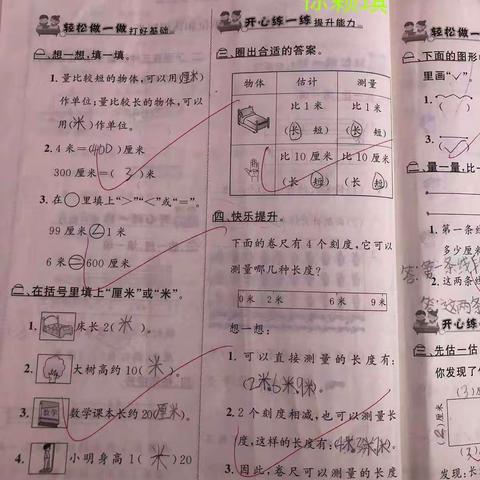 陈颖淇
轻松做一做 打好基础
一、想一想,填一填。
1. 量比较短的物体,可以用(厘米)
作单位;量比较长的物体,可以
用(米)作单位。
2. 4米=(400)厘米
300厘米=(3)米
3. 在○里填上“>”“<”或“=”。
99厘米<1米
6米=600厘米
二、在括号里填上“厘米”或“米”。
1. 床长2(米)。
2. 大树高约10(米)。
3. 数学 数学课本长约20(厘米)。
4. 小明身高1(米)20
开心练一练 提升能力
三、圈出合适的答案。
物体 估计 测量
比1米 比1米
(长 短) (长 短)
比10厘米 比10厘米
(长 短) (长 短)
四、快乐提升。
下面的卷尺有4个刻度,它可以
测量哪几种长度?
0米 2米 6米 9米
想一想:
1. 可以直接测量的长度有:
(2米6米9米)
2. 2个刻度相减,也可以测量长
度,这样的长度有:
3. 因此,卷尺可以测量的长度
轻松
二、下面的图形
里画“√”
1. (
3. (
二、量一量,比一
1. 第一条线
多少厘米
答:第一条线
2. 这两条线
答:这两条
开心练
三、先估一估
你发现了什
(3)厘
(2)厘米
发现:长